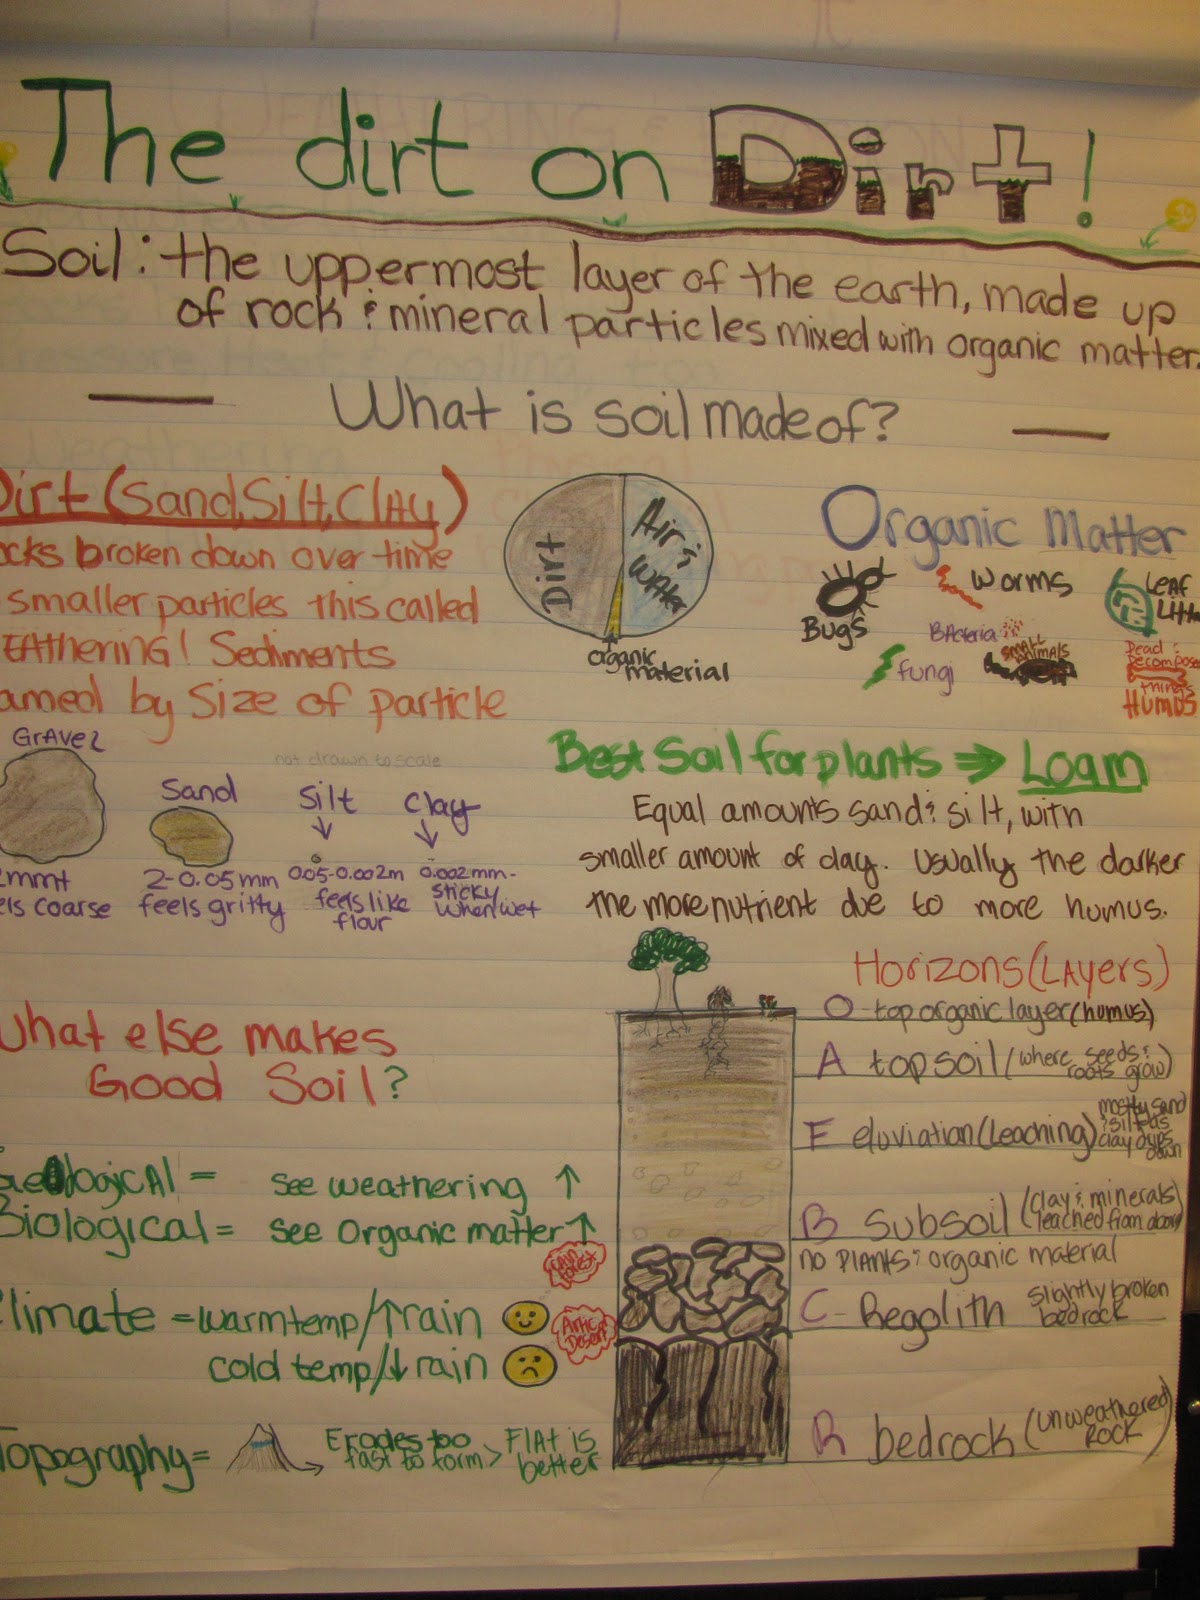 The dirt on Dirt!
Soil: the uppermost layer of the earth, made up
of rock & mineral particles mixed with organic matter.
What is soil made of?
Dirt (Sand, Silt, Clay)
ocks broken down over time
smaller particles this called
EAthering! Sediments
amed by Size of particle
GrAvel
2mm+
els coarse
Sand
2-0.05mm
feels gritty
not drawn to scale
Silt
0.05-0.002m
feels like
flour
Clay
0.002mm-
sticky
when wet
Dirt
Air &
water
organic
material
Organic Matter
Bugs
Worms
LeAf
Litt
BActeria
fungi
small
animals
Dead &
Decompose
things
Humus
Best Soil for plants ⇒ Loam
Equal amounts sand & silt, with
smaller amount of clay. Usually the darker
the more nutrient due to more humus.
What else makes
Good Soil?
Geological = see weathering ↑
Biological = see Organic matter ↑
Climate = warm temp/↑rain
rain
forest
cold temp/↓rain
Artic or
Desert
Topography = Erodes too
fast to form > FlAt is
better
Horizons (LAyers)
O - top organic layer (humus)
A topsoil (where seeds &
roots grow)
E eluviation (Leaching) mostly sand
& silt as
clay drips
down
B subsoil (clay & minerals
leached from above)
no PlAnts & organic material
C - Regolith slightly broken
bedrock
R bedrock (unweathered
Rock)